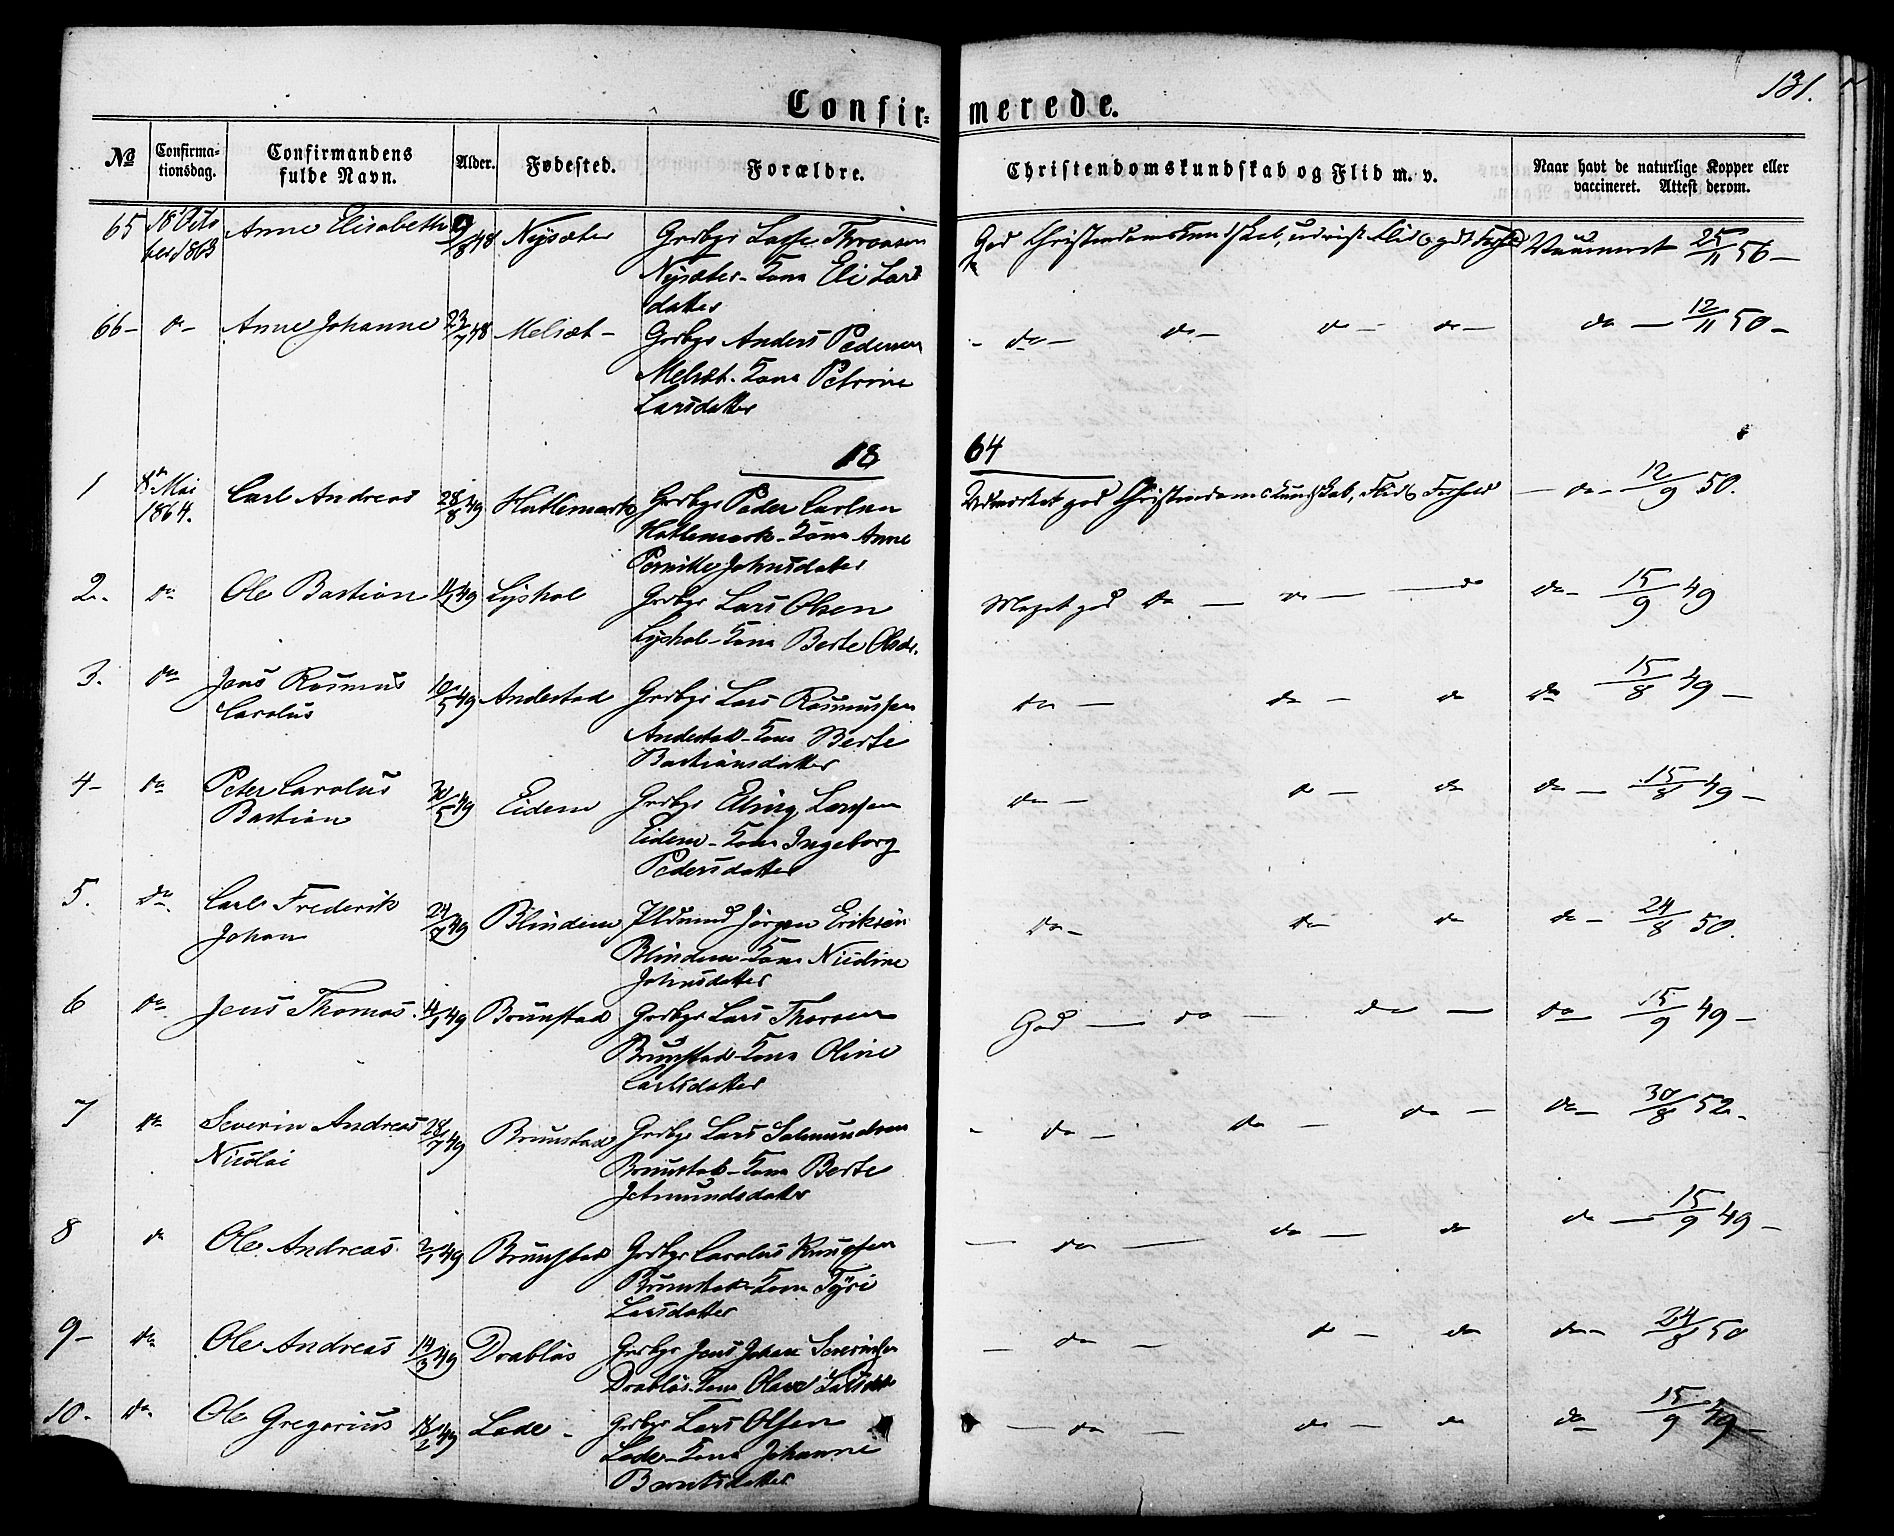 131.
Confir= merede.
No Confirma-tionsdag. Confirmandens fulde Navn. Alder. Fødested. Forældre. Christendomskundskab og Flid m. v. Naar havt de naturlige Kopper eller vaccineret. Attest derom.
65 18 Octo Anne Elisabeth 9/8 48 Nysæter Grdbgr Lasse
ber 1863 Nysæter - Kone Eli Lars
datter
God Christendomskundskab, Flid og godt Forhold Vaccineret 25/11 56 -
66 - do - Anne Johanne 23/7 48 Melsæt - Grdbgr Anders Pedersen
Melsæt - Kone Petrine
Larsdatter
- do - do - do - do - do - 12/11 50 -
18 64
1 8de Mai Carl Andreas 28/8 49 Hatlemark Grdbgr Peder Carlsen
1864. Hatlemark - Kone Anne
Pernille Johnsdatter
Udmærket god Christendomskundskab, Flid & Forhold - do - 12/9 50.
2. do Ole Bastian 11/1 49 Lyshol Grdbgr Lars Olsen
Lyshol - Kone Berte Olsdr.
Meget god do - do - do do - 15/9 49
3. do Jens Rasmus 10/5 49 Andestad Grdbgr Lars Rasmussen
Carolus Andestad - Kone Berte
Bastiansdatter
do - do - do do 15/8 49 -
4 - do Peter Carolus 30/5 49 Eidem Grdbgr Elling Larssen
Bastian Eidem - Kone Ingeborg
Pedersdatter
do - do - do do - 15/8 49 -
5. do Carl Frederik 24/7 49 Blindem Plsmd Jørgen Eriksen
Johan Blindem - Kone Nicoline
Johnsdatter
do - do do do - 24/8 50.
6 do Jens Thomas 4/1 49 Brunstad Grdbgr Lars
Brunstad - Kone Oline
Carlsdatter
God - do - do - do 15/9 49 -
7 do Severin Andreas 28/7 49 Brunstad Grdbgr Lars Salmundsen
Nicolai Brunstad - Kone Berte
Jetmundsdatter
- do - do - do - do - 30/8 52 -
8 do Ole Andreas 2/1 49 Brunstad Grdbgr Carolus Knudsen
Brunstad - Kone Tyri
Larsdatter
- do - do - do do - 15/9 49 -
9 - do Ole Andreas 14/3 49 Drabløs Grdbgr Jens Johan Severinsen
Drabløs. Kone
- do - do - do do - 24/8 50
10. do Ole Gregorius 49 Lade - Grdbgr Lars Olsen
Lade - Kone Johanne
Berntsdatter
- do - do - do do 15/9 49 -